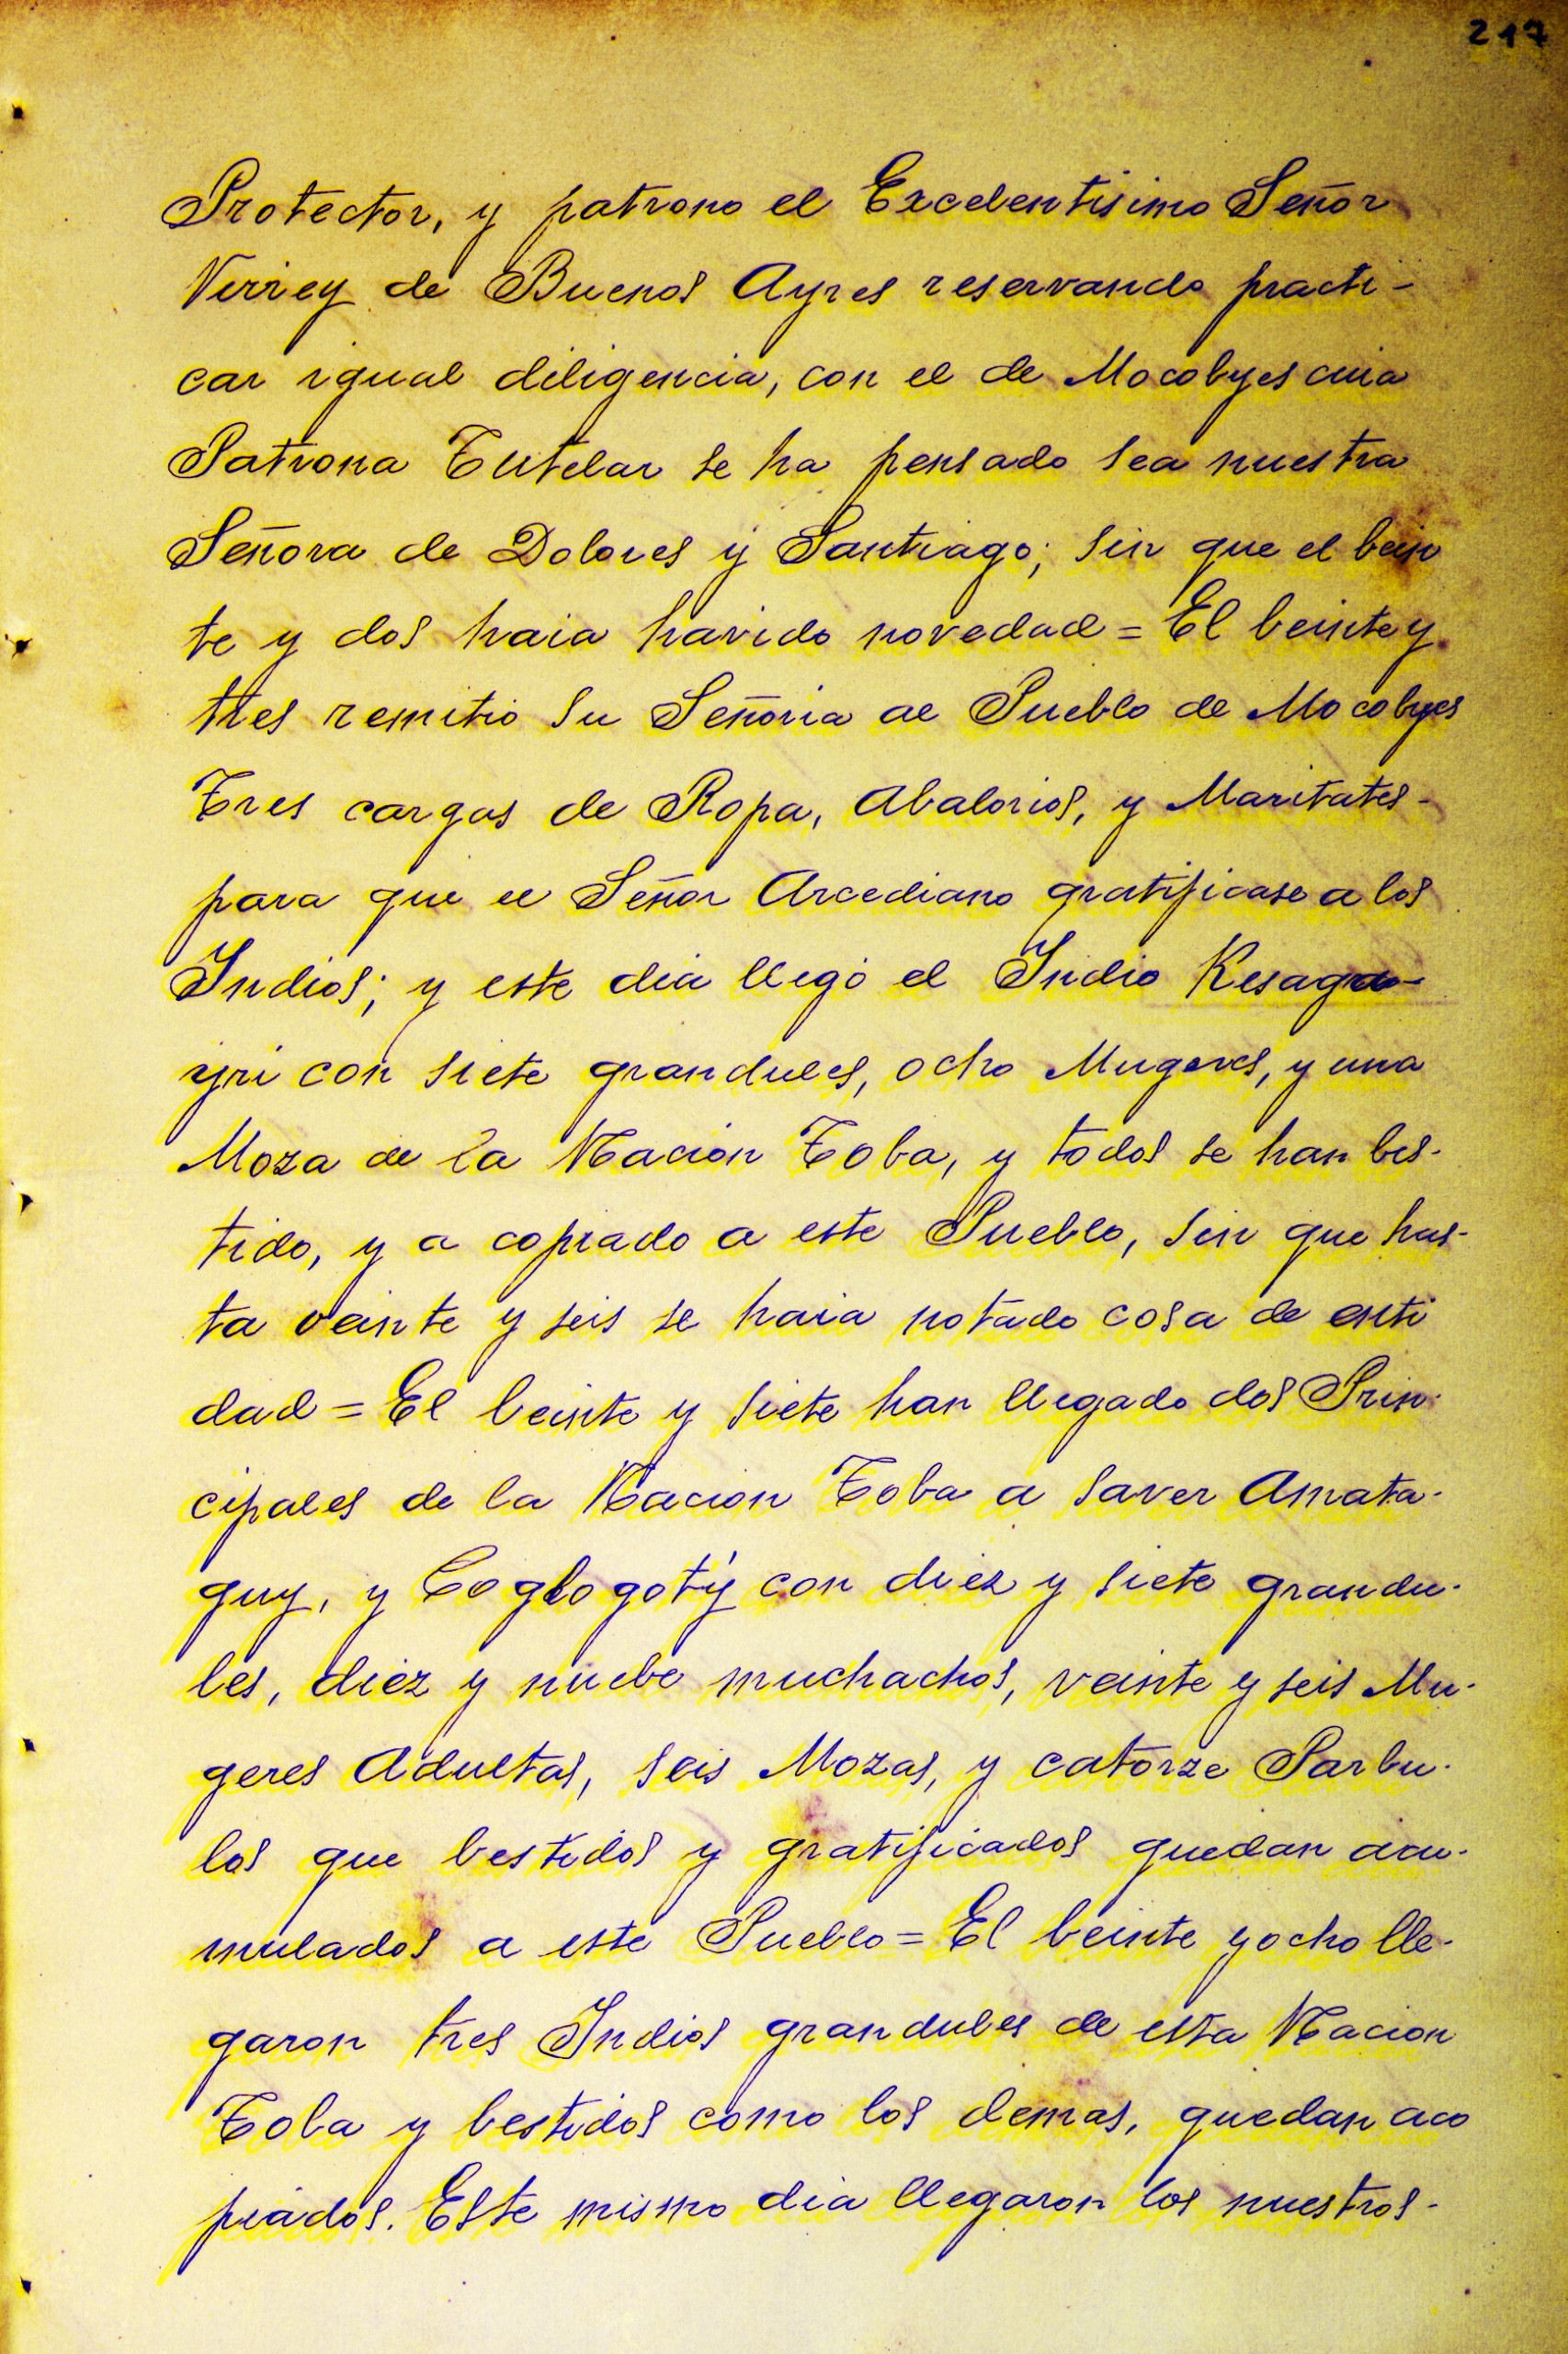 217
Protector, y patrono el Excelentisimo Señor
Virrey de Buenos Ayres reservando practi-
car igual diligencia, con el de Mocobyes cuia
Patrona Tutelar se ha pensado sea nuestra
Señora de Dolores y Santiago; sin que el bein
te y dos haia havido novedad = El beinte y
tres remitio su Señoria al Pueblo de Mocobyes
Tres cargas de Ropa, Abalorios, y Maritates-
para que el Señor Arcediano gratificase a los
Indios; y este dia llegó el Indio Kesaga-
yri con siete grandules, ocho Mugeres, y una
Moza de la Nacion Toba, y todos se han bes-
tido, y a copiado a este Pueblo, sin que has-
ta veinte y seis se haia notado cosa de enti
dad = El beinte y siete han llegado dos Prin-
cipales de la Nacion Toba a saver Amata-
guy, y Coglogotý con diez y siete grandu-
les, diez y nuebe muchachos, veinte y seis Mu-
geres Adultas, seis Mozas, y catorze Parbu-
los que bestidos y gratificados quedan acu-
mulados a este Pueblo = El beinte y ocho lle-
garon tres Indios grandules de esta Nacion
Toba y bestidos como los demas, quedan aco
piados. Este mismo dia llegaron los nuestros-